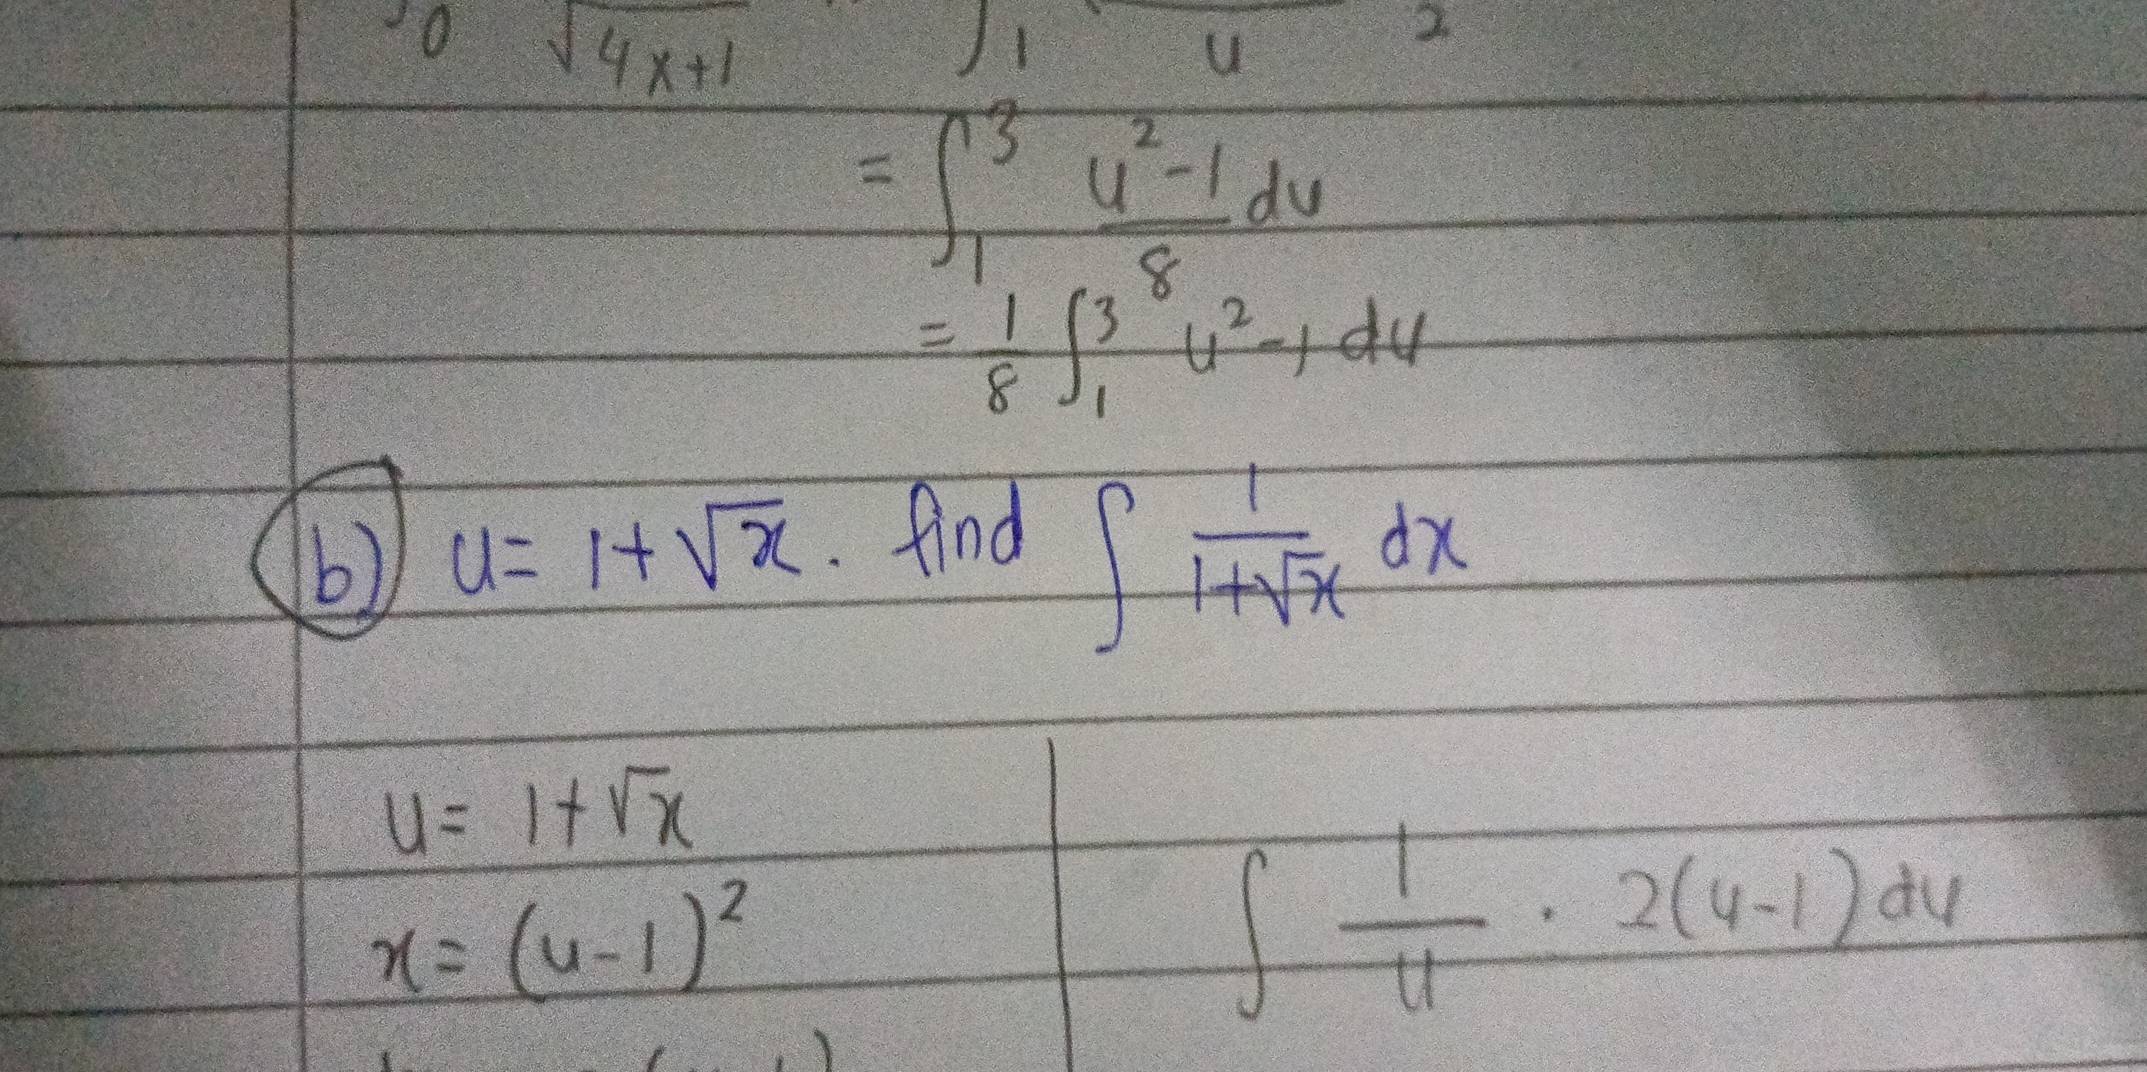 0 √4x+1 ∫1 u 2
= ∫1^3 (u²-1)/8 du
= 1/8 ∫1^3 u²-1 du
b) u= 1+√x. find ∫ 1/(1+√x) dx
u= 1+√x
x= (u-1)²
∫ 1/u · 2(u-1) du